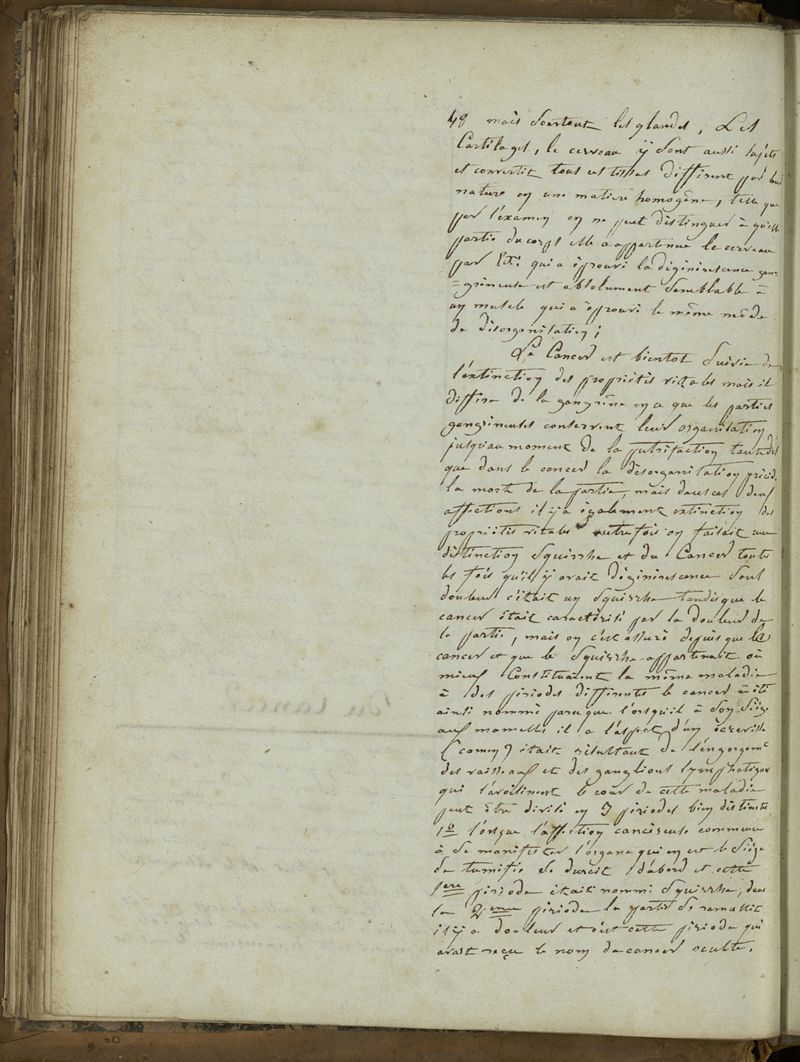 48 mais surtout les glandes, Les
Cartilages, le cerveau y sont aussi sujets
et convertit tous ces tissus different par leur
nature en une matiere homogène, telle que
par l'éxamen on ne peut distinguer à quelle
partie du corps elle a appartenue le cerveau
par Ex. qui a éprouvé la dégénérescence gan
=gréneuse est absolument semblable à
un muscle qui a éprouvé le même mode
de désorganisation;
Le Cancer est bientot suivie de
l'éxtinction des propriétés vitales mais il
differe de la gangrène en ce que les parties
gangreneuses conservent leur organisation
jusqu'au moment de la putréfaction tandis
que dans le cancer la désorganisation précéd.
la mort de la partie, mais dans ces deux
affections il y a également extinction des
propriétés vitales autrefois on faisait une
distinction squirrhe et du Cancer toutes
les fois qu'il y avait dégénérescence sans
douleur c'était un squirrhe tandis que le
cancer était caractérisé par la douleur de
la partie, mais on s'est assuré depuis que le
cancer et que le squirrhe appartenait ou
mieux constituaient la même maladie
à des périodes differente le cancer à été
ainsi nommé parceque l'orsqu'il à son siége
aux mamelles il a l'aspect d'un écrevisse
(cancer) était résultant de l'éngorgemt
des vaisseaux et des ganglions lymphatiques
qui l'avoisinent le cour de cette maladie
peut être divisé en 3 périodes bien distincte
1o l'orsque l'affection cancéreuse commence
à se manifester l'organe qui en est le siége
se tuméfie se durcit d'abord et cette
1ere période était nommé squirrhe, dans
la 2eme période la partie se ramollit
il y a douleur et c'est cette période qui
avait reçu le nom de cancer occulte.